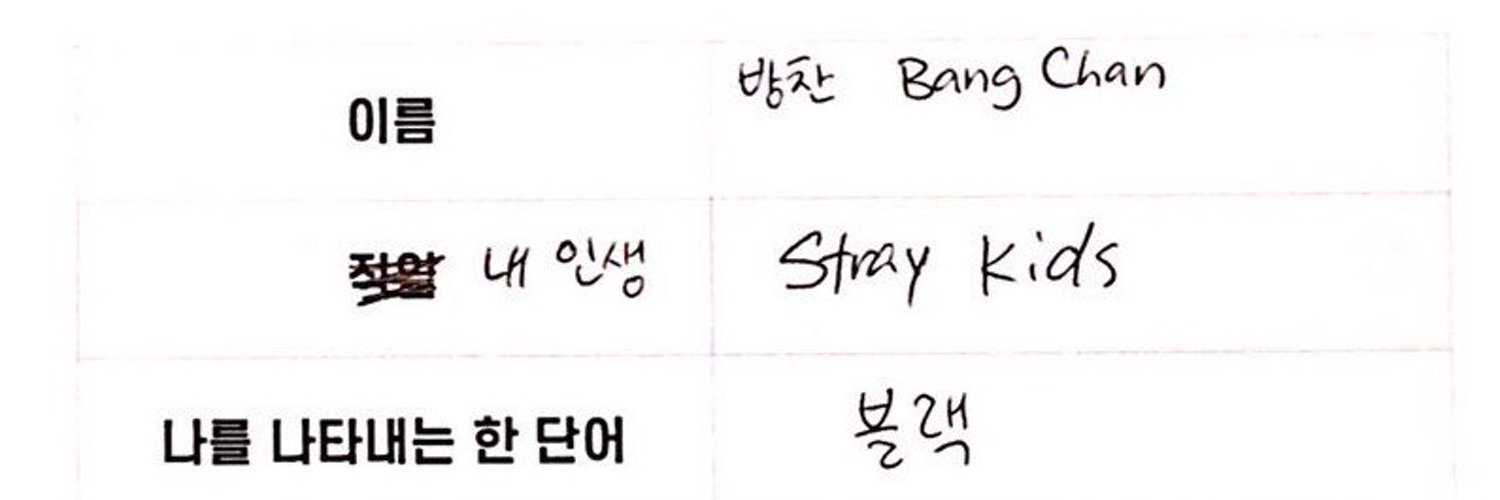 이름 방찬 Bang Chan
내 인생 Stray Kids
나를 나타내는 한 단어 블랙